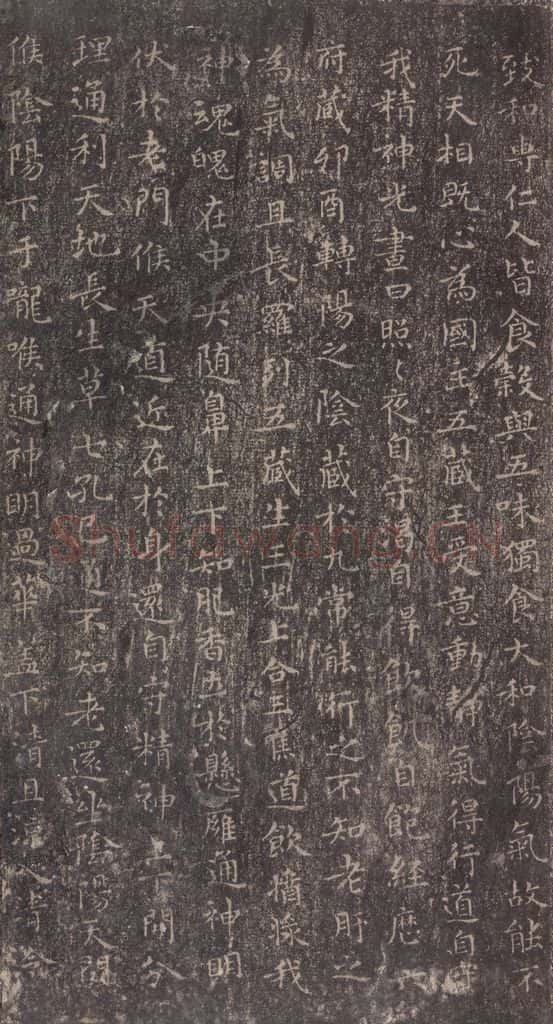 致和專仁人皆食穀與五味獨食大和陰陽氣故能不
死天相既心為國主五藏王受意動靜氣得行道自守
我精神光晝日照々夜自守渴自得飲飢自飽經歷六
府藏卯酉轉陽之陰藏於九常能行之不知老肝之
為氣調且長羅列五藏生三光上合三焦道飲漿我
神魂魄在中央随鼻上下知肥香立於懸廱通神明
伏於老門候天道近在於身還自守精神上下開分
理通利天地長生草七孔已通不知老還坐陰陽天門
候陰陽下于嚨喉通神明過華蓋下清且涼入清泠
Shufawang.CN